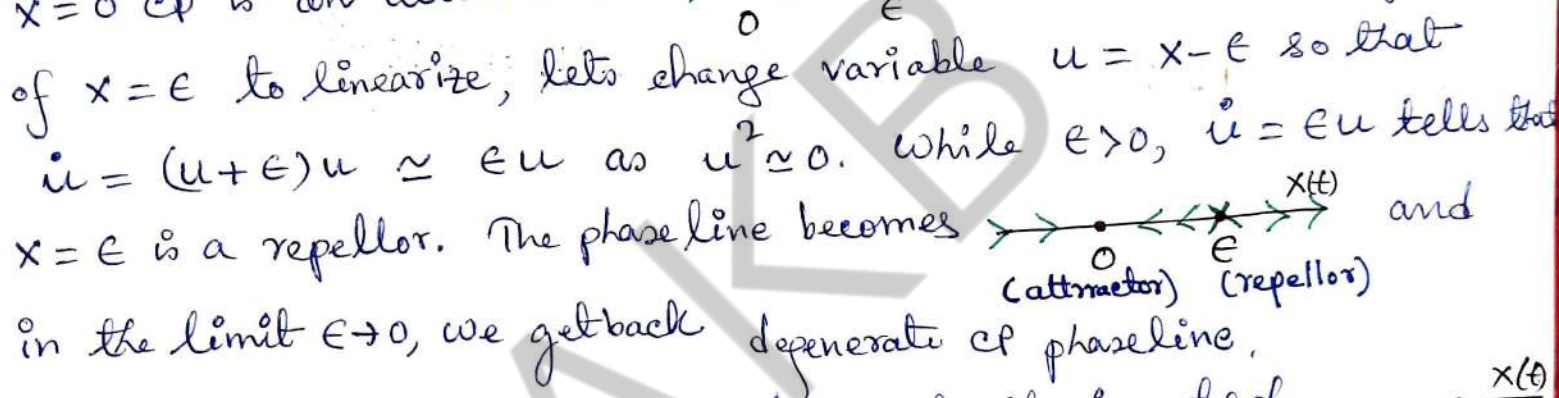 x = 0 cp is an
0 ϵ
of x = ϵ to linearize, lets change variable u = x - ϵ so that
u̇ = (u + ϵ)u ≃ ϵu as u² ≃ 0. While ϵ > 0, u̇ = ϵu tells that
x = ϵ is a repellor. The phase line becomes x(t) and
0 ϵ
(attractor) (repellor)
in the limit ϵ→0, we getback degenerate cp phaseline.
x(t)
AKB